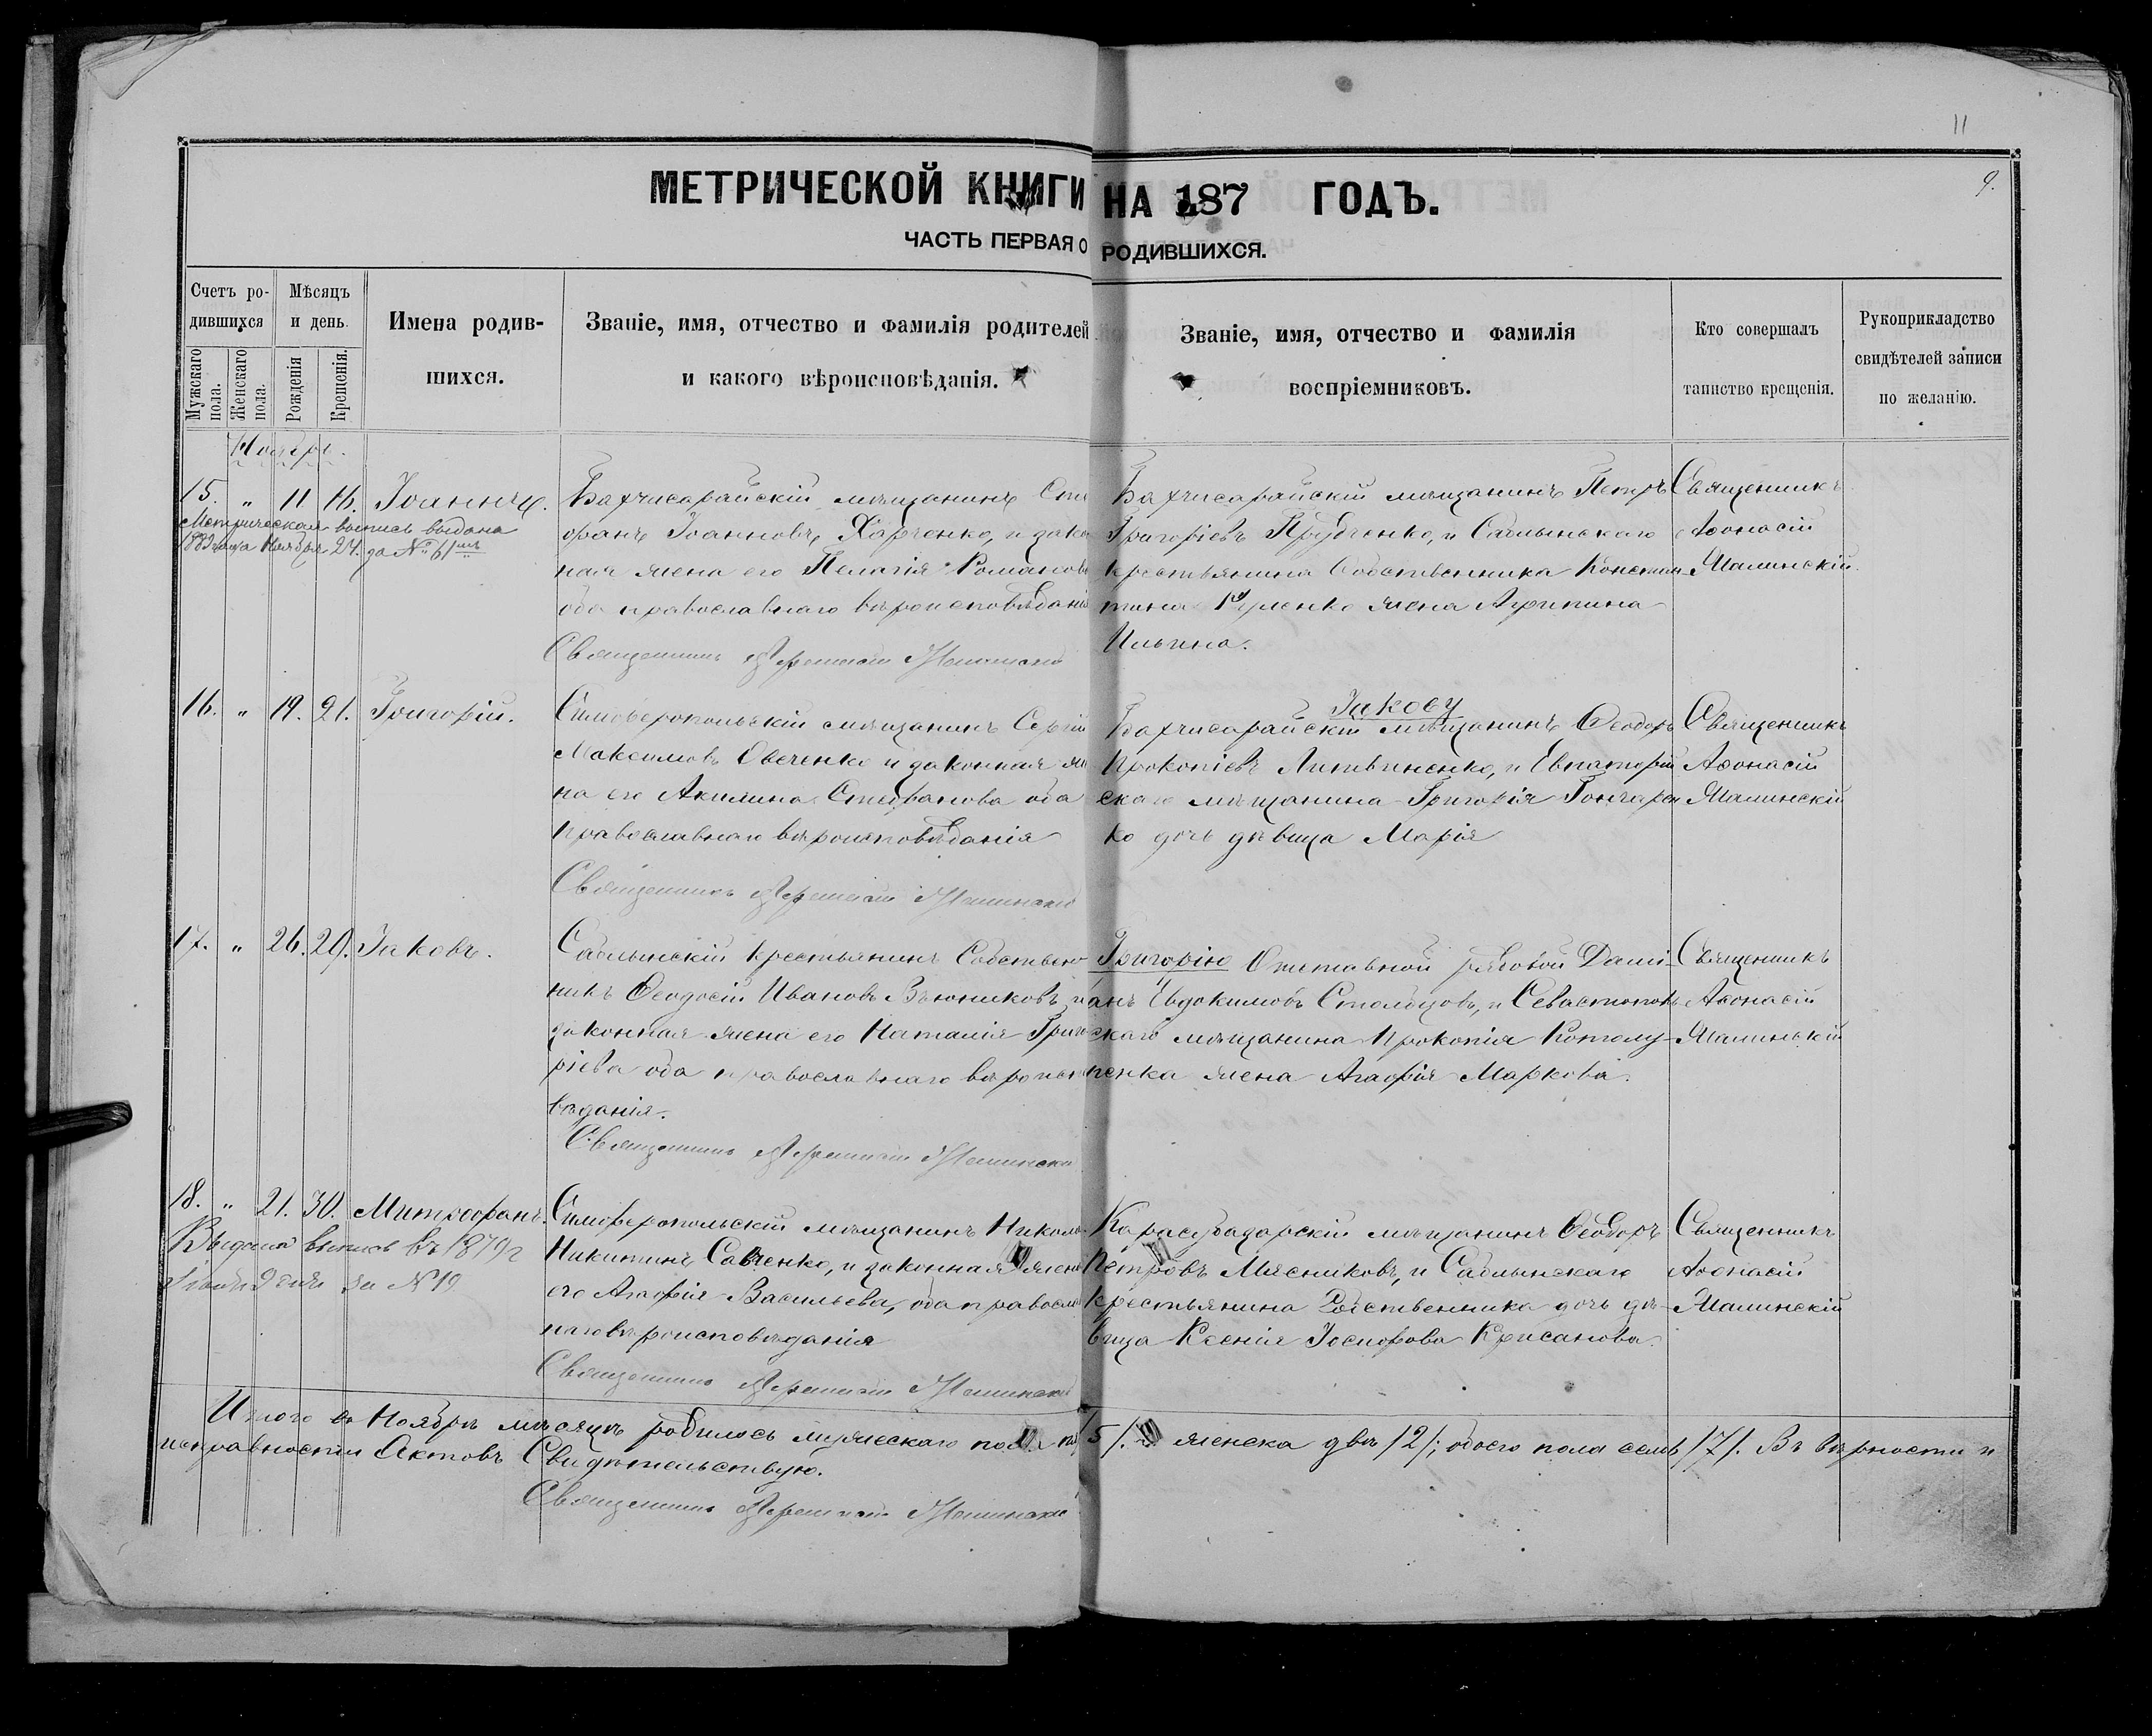 11
9.
МЕТРИЧЕСКОЙ КНИГИ НА 187 ГОДЪ.
ЧАСТЬ ПЕРВАЯ О РОДИВШИХСЯ.
Счетъ ро-
дившихся
Мужскаго пола.
Женскаго пола.
Мѣсяцъ
и день.
Рожденія
Крещенія.
Имена родив-
шихся.
Званіе, имя, отчество и фамилія родителей
и какого вѣроисповѣданія.
Званіе, имя, отчество и фамилія
воспріемниковъ.
Кто совершалъ
таинство крещенія.
Рукоприкладство
свидѣтелей записи
по желанію.
Ноябрь.
15. " 11 16. Іоаннъ.
Метрическая выпись выдана
Ноября 24. за №
Бахчисарайскій мѣщанинъ Сте
фанъ Іоанновъ Харченко, и закон
ная жена его Пелагія Романова
оба православнаго вѣроисповѣданія
Священникъ
Бахчисарайскій мѣщанинъ Петръ
Григорієвъ Трубченко, и Саблынскаго
крестьянина Собственника Констан
тина жена Агрипина
Ильина.
Священникъ
Аѳонасій
Малинскій.
16. " 19. 21. Григорій.
Симферопольскій мѣщанинъ Сергій
Максимовъ Овченко и законная же
на его Акилина Стефанова оба
православнаго вѣроисповѣданія
Священникъ
Іакову
Бахчисарайскій мѣщанинъ Ѳеодоръ
Прокопіевъ Литвиненко, и Евпаторій
скаго мѣщанина Григорія Гончарен
ко дочь дѣвица Марія
Священникъ
Аѳонасій
Малинскій
17. " 26. 29. Іаковъ.
Саблынскій крестьянинъ Собствен
никъ Ѳеодосій Ивановъ Вьюниковъ и
законная жена его Наталія Григо
ріева оба православнаго вѣроиспо
вѣданія.
Священникъ
Григорію Отставной рядовой Дамі-
анъ Евдокимовъ Столбцовъ, и Севастополь
скаго мѣщанина Прокопія Котолу-
пенка жена Агафія Маркова.
Священникъ
Аѳонасій
Малинскій
18. " 21. 30. Митрофанъ.
Выдана выпись въ 1879 г
за № 19
Симферопольскій мѣщанинъ Николай
Никитинъ Савченко, и законная жена
его Агафія Васильева, оба православ
наго вѣроисповѣданія
Священникъ
Карасубазарскій мѣщанинъ Ѳеодоръ
Петровъ Мясниковъ, и Саблынскаго
крестьянина Собственника дочь дѣ-
вица Ксенія Іосифова Крисанова.
Священникъ
Аѳонасій
Малинскій
Итого въ Ноябрѣ мѣсяцѣ родилось мужескаго пола /5/. женска двѣ /2/; обоего пола семь /7/. Въ вѣрности и
исправности Актовъ Свидѣтельствую.
Священникъ